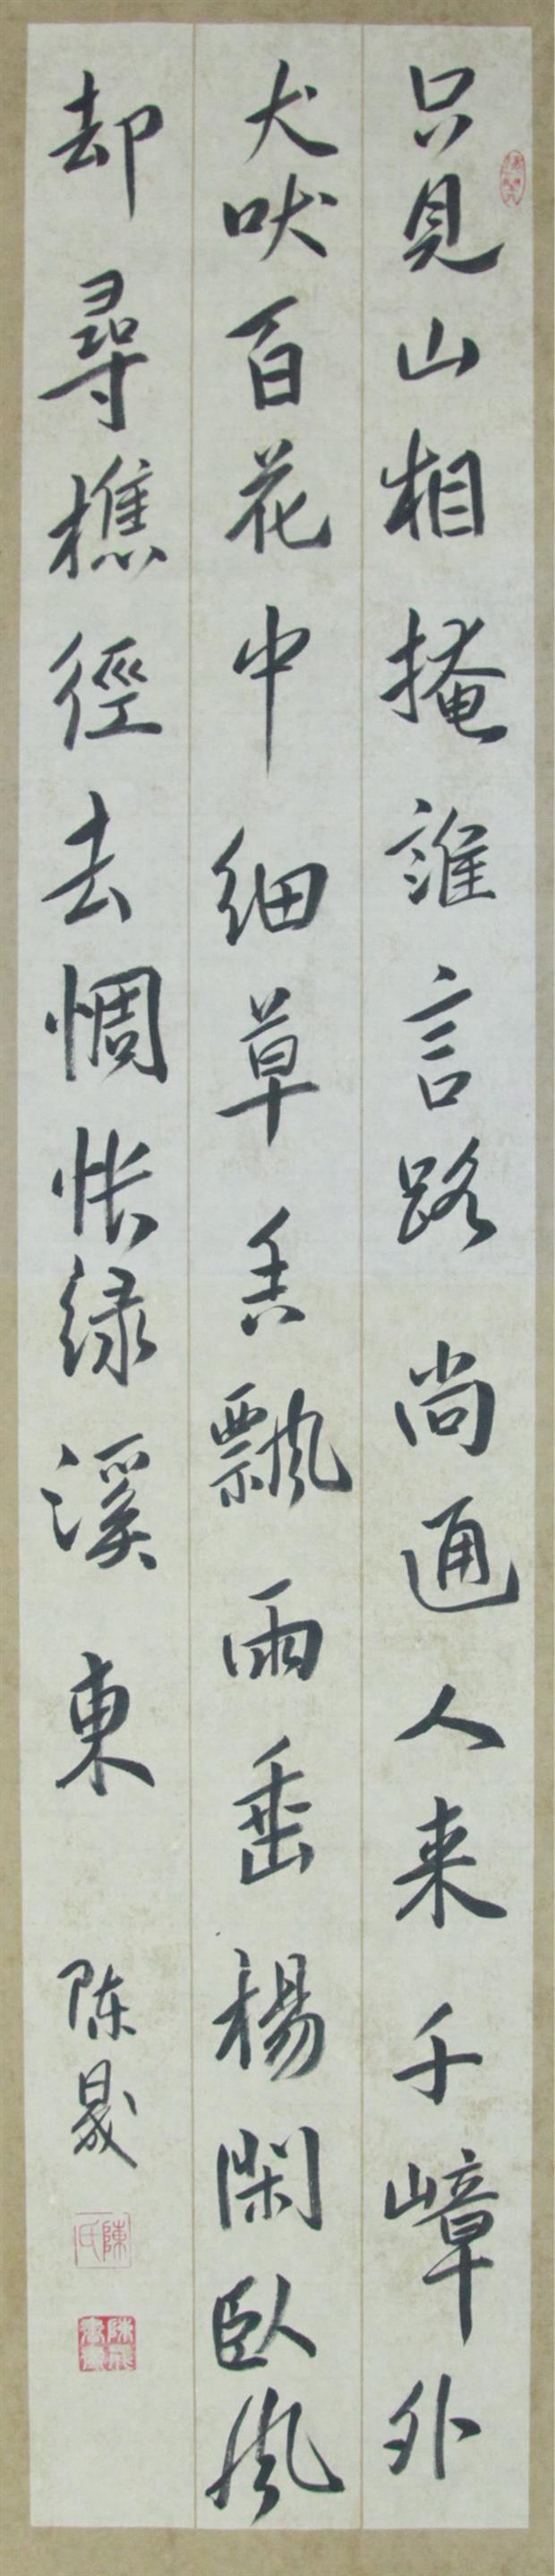 只見山相掩誰言路尚通人来千嶂外
犬吠百花中細草香飄雨垂楊閑臥風
却尋樵徑去惆悵绿溪東 陈晟
陳氏